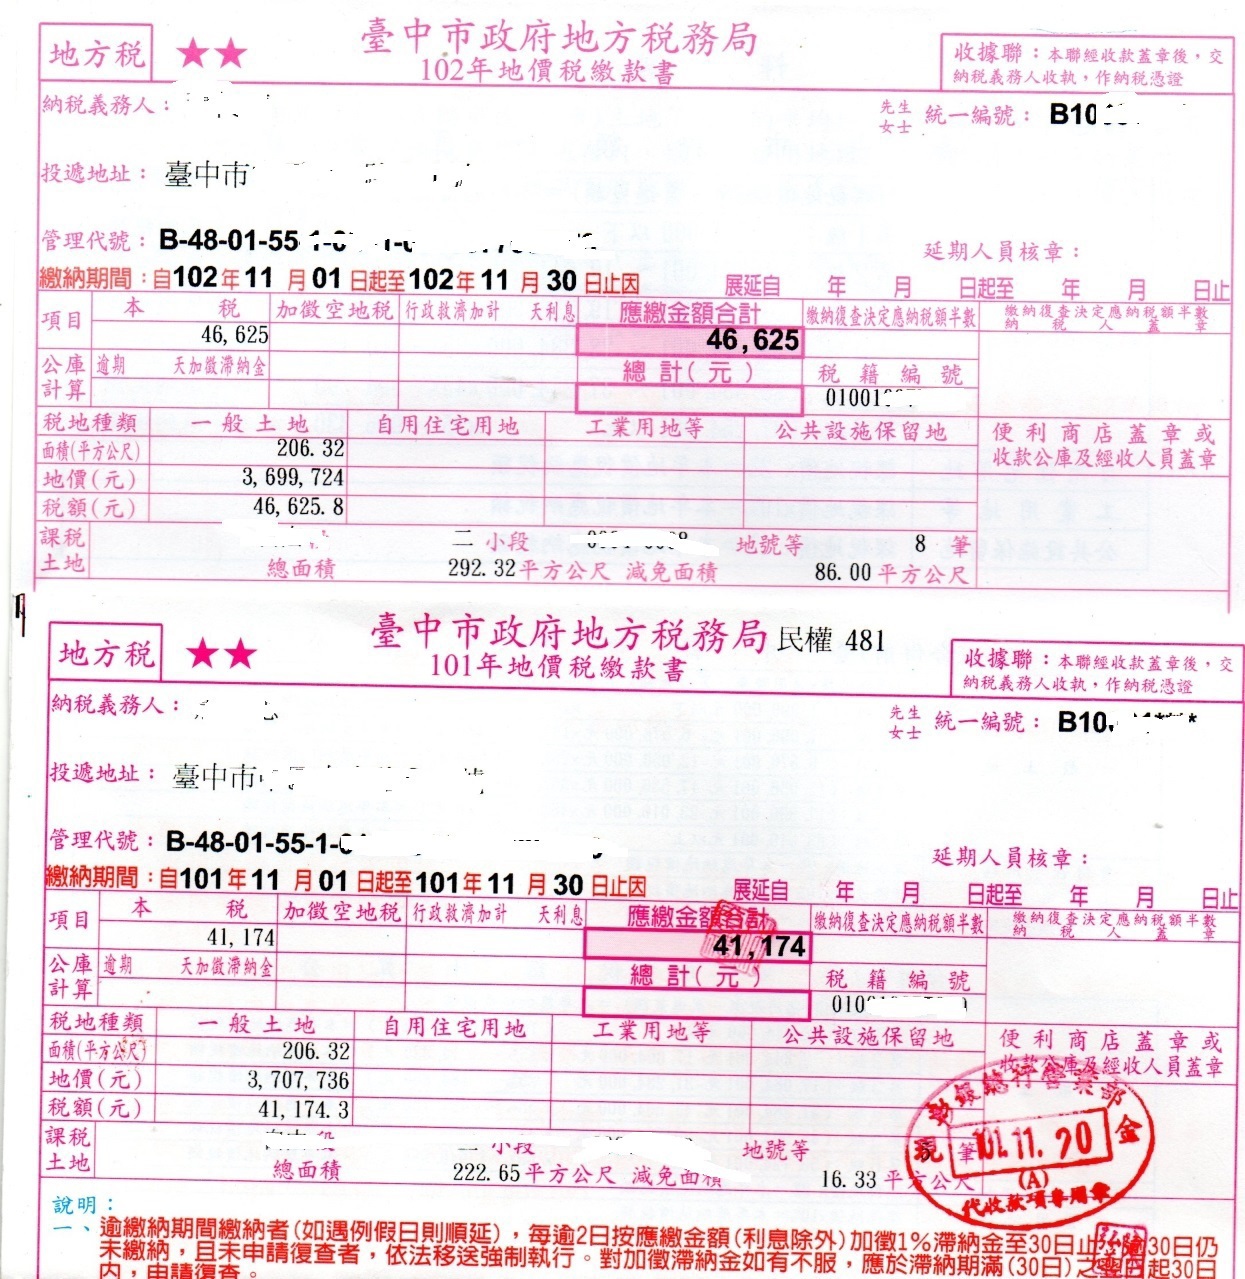 地方稅 ★★ 臺中市政府地方稅務局
102年地價稅繳款書
收據聯：本聯經收款蓋章後，交
納稅義務人收執，作納稅憑證
納稅義務人：
先生
女士 統一編號： B10
投遞地址： 臺中市
管理代號： B-48-01-55
延期人員核章：
繳納期間：自102年11月01日起至102年11月30日止因 展延自 年 月 日起至 年 月 日止
項目 本 稅 加徵空地稅 行政救濟加計 天利息 應繳金額合計 繳納復查決定應納稅額半數 繳納復查決定應納稅額半數
納 稅 人 蓋 章
46,625 46,625
公庫計算 逾期 天加徵滯納金 總計(元) 稅籍編號
01001
稅地種類 一般土地 自用住宅用地 工業用地等 公共設施保留地 便利商店蓋章或
收款公庫及經收人員蓋章
面積(平方公尺) 206.32
地價(元) 3,699,724
稅額(元) 46,625.8
課稅土地 二 小段 地號等 8 筆
總面積 292.32平方公尺 減免面積 86.00平方公尺
地方稅 ★★ 臺中市政府地方稅務局 民權 481
101年地價稅繳款書
收據聯：本聯經收款蓋章後，交
納稅義務人收執，作納稅憑證
納稅義務人：
先生
女士 統一編號： B10
投遞地址： 臺中市
管理代號： B-48-01-55-1-
延期人員核章：
繳納期間：自101年11月01日起至101年11月30日止因 展延自 年 月 日起至 年 月 日止
項目 本 稅 加徵空地稅 行政救濟加計 天利息 應繳金額合計 繳納復查決定應納稅額半數 繳納復查決定應納稅額半數
納 稅 人 蓋 章
41,174 41,174
公庫計算 逾期 天加徵滯納金 總計(元) 稅籍編號
010
稅地種類 一般土地 自用住宅用地 工業用地等 公共設施保留地 便利商店蓋章或
收款公庫及經收人員蓋章
面積(平方公尺) 206.32
地價(元) 3,707,736
稅額(元) 41,174.3
課稅土地 小段 地號等 筆
總面積 222.65平方公尺 減免面積 16.33平方公尺
銀總行營業部
稅 101.11.20 金
(A)
代收款項專用章
說明：
一、逾繳納期間繳納者(如遇例假日則順延)，每逾2日按應繳金額(利息除外)加徵1%滯納金至30日止，逾30日仍
未繳納，且未申請復查者，依法移送強制執行。對加徵滯納金如有不服，應於滯納期滿(30日)之翌日起30日
內，申請復查。